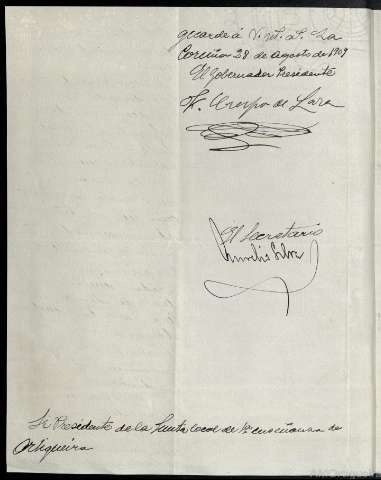 guarde á V.
Coruña 28 de Agosto de 1909
El Gobernador Presidente
F. Crespo de Lara
El Secretario
Aurelio Silva
Sr Presidente de la Junta local de 1ª enseñanza de
Ortigueira